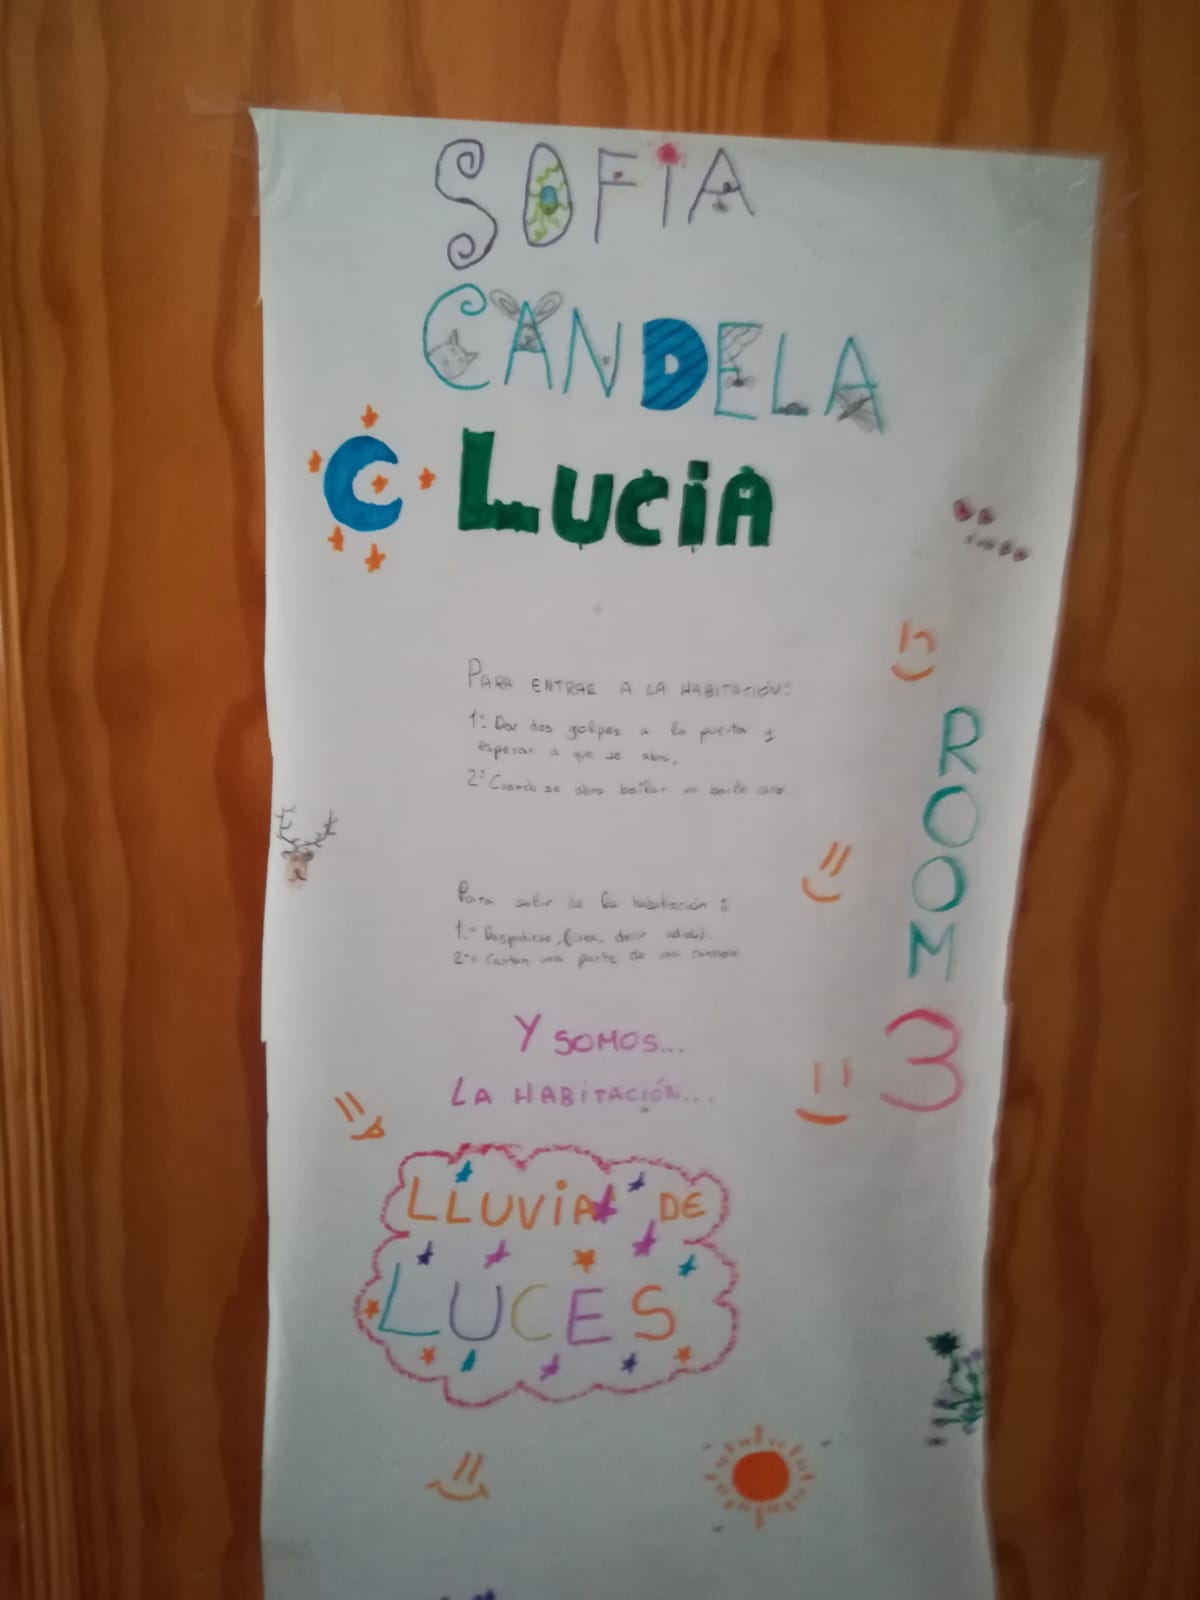 SOFIA
CANDELA
LUCIA
PARA ENTRAR A LA HABITACIÓN:
1º Dar dos golpes a la puerta y
esperar a que se abra,
2º Cuando se abra bailar un baile raro
Para salir de la habitación:
1.= Despedirse, (osea, decir adiós).
2.= Cantan una parte de una canción
ROOM
3
Y SOMOS...
LA HABITACIÓN...
LLUVIA DE
LUCES